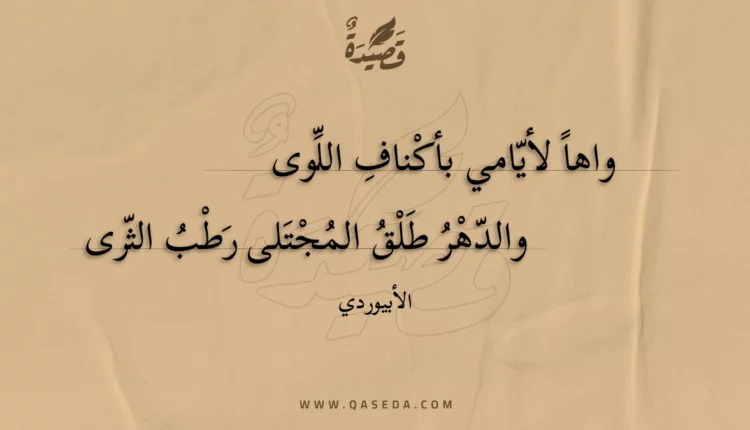 قَصِيدَةٌ
واهاً لأيّامي بأكْنافِ اللِّوى
والدّهْرُ طَلْقُ المُجْتَلى رَطْبُ الثّرى
الأبيوردي
WWW.QASEDA.COM